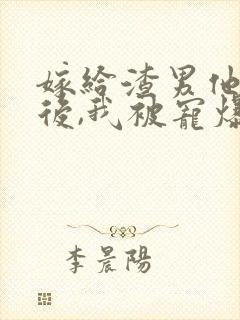 嫁給渣男他
後,我被寵爆
李晨陽